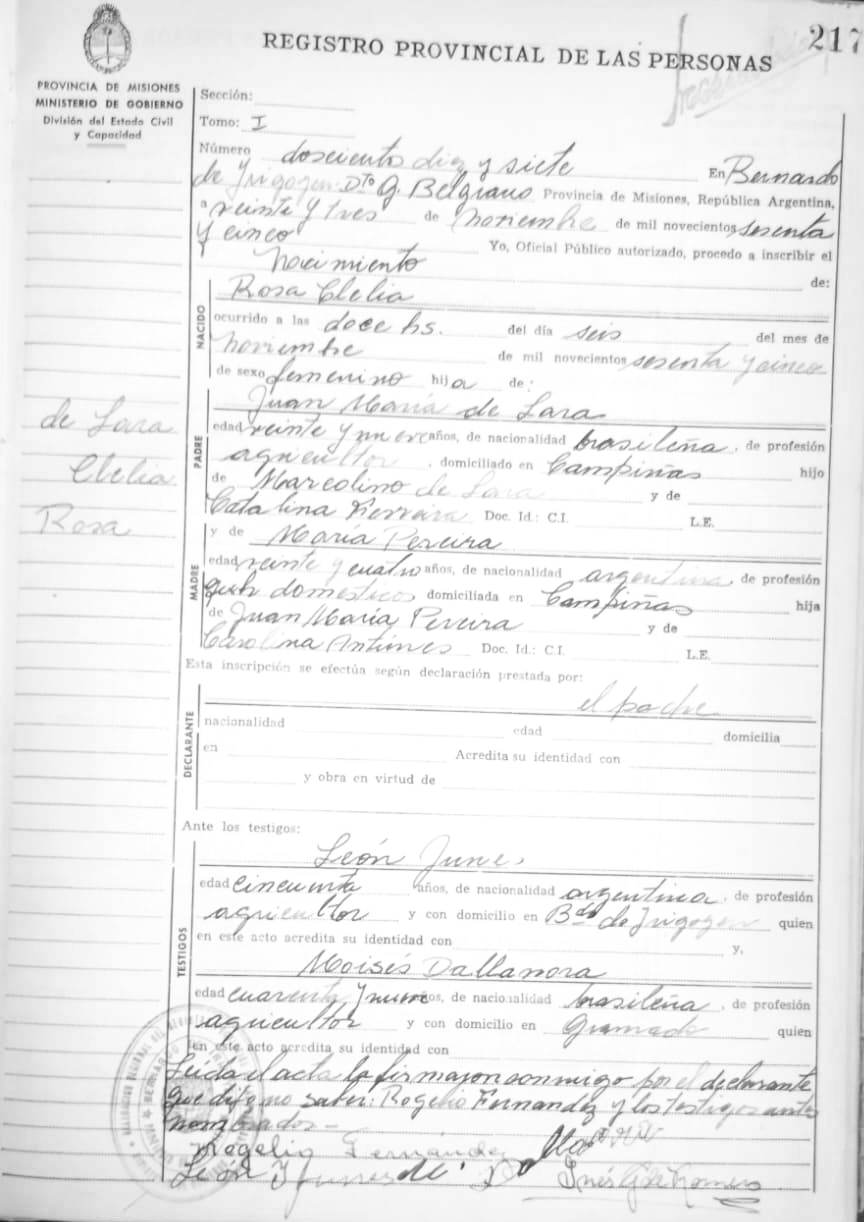 217
REGISTRO PROVINCIAL DE LAS PERSONAS
PROVINCIA DE MISIONES
MINISTERIO DE GOBIERNO
División del Estado Civil
y Capacidad
Sección:
Tomo: I
Número doscientos diez y siete En Bernardo
de Irigoyen Dto G. Belgrano Provincia de Misiones, República Argentina,
a veinte y tres de noviembre de mil novecientos sesenta
y cinco Yo, Oficial Público autorizado, procedo a inscribir el
nacimiento de:
NACIDO
Rosa Clelia
ocurrido a las doce hs. del día seis del mes de
noviembre de mil novecientos sesenta y cinco
de sexo femenino hija de:
Juan María de Lara
de Lara
Clelia
Rosa
PADRE
edad veinte y nueve años, de nacionalidad brasileña, de profesión
agricultor, domiciliado en Campiñas hijo
de Marcolino de Lara y de
Catalina Ferreira Doc. Id.: C.I. L.E.
y de María Pereira
MADRE
edad veinte y cuatro años, de nacionalidad argentina, de profesión
queh domésticos domiciliada en Campiñas hija
de Juan María Pereira y de
Carolina Antunes Doc. Id.: C.I. L.E.
Esta inscripción se efectúa según declaración prestada por:
DECLARANTE
el padre
nacionalidad edad domicilia
en Acredita su identidad con
y obra en virtud de
Ante los testigos:
TESTIGOS
León
edad cincuenta años, de nacionalidad argentina, de profesión
agricultor y con domicilio en Bdo de Irigoyen quien
en este acto acredita su identidad con y,
Moisés Dallanora
edad cuarenta y nueve años, de nacionalidad brasileña, de profesión
agricultor y con domicilio en Gramado quien
en este acto acredita su identidad con
Leida el acta la firmaron conmigo por el declarante
que dijo no saber: Rogelio Fernandez y los testigos antes
nombrados -
Rogelio Fernández
León